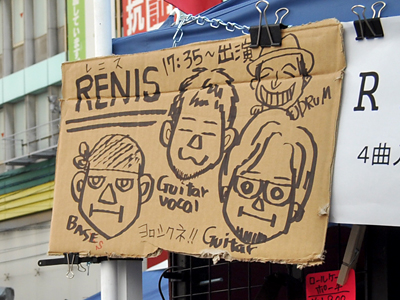 レニス
RENIS 17:35~出演
DRUM
Guitar
vocal
BASE
ヨロシクネ!! Guitar
R
4曲入
抗
ロールケ